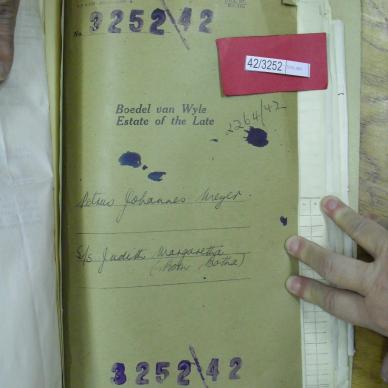 No. 3252/42
42/3252
Boedel van Wyle
Estate of the Late
2264/42
Petrus Johannes Meyer.
S/s Judith Margaretha
(born Botha)
3252/42